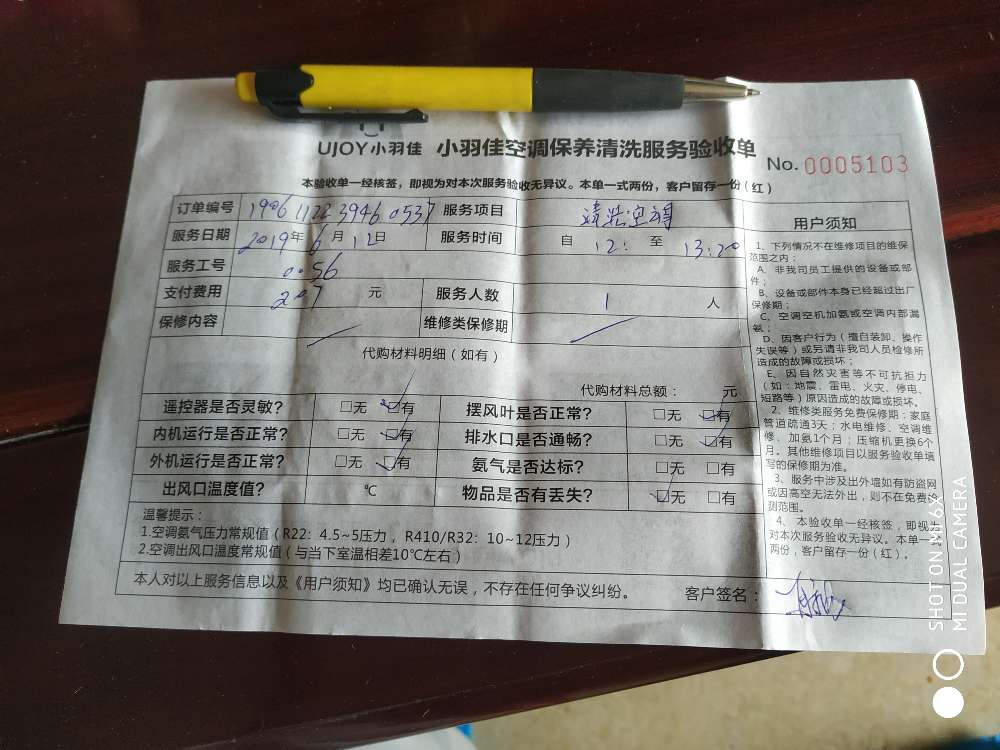 UJOY小羽佳 小羽佳空调保养清洗服务验收单 No. 0005103
本验收单一经核签，即视为对本次服务验收无异议。本单一式两份，客户留存一份（红）
订单编号 1906112239460537 服务项目 清洗空调
服务日期 2019年6月12日 服务时间 自 12: 至 13:20
服务工号 0056
支付费用 207 元 服务人数 1 人
保修内容 维修类保修期
代购材料明细（如有）
代购材料总额： 元
遥控器是否灵敏？ □无 □有 摆风叶是否正常？ □无 □有
内机运行是否正常？ □无 □有 排水口是否通畅？ □无 □有
外机运行是否正常？ □无 □有 氨气是否达标？ □无 □有
出风口温度值？ ℃ 物品是否有丢失？ □无 □有
温馨提示：
1.空调氨气压力常规值（R22：4.5~5压力，R410/R32：10~12压力）
2.空调出风口温度常规值（与当下室温相差10℃左右）
本人对以上服务信息以及《用户须知》均已确认无误，不存在任何争议纠纷。 客户签名：
用户须知
1、下列情况不在维修项目的维保
范围之内：
A、非我司员工提供的设备或部
件；
B、设备或部件本身已经超过出厂
保修期；
C、空调空机加氨或空调内部漏
氨；
D、因客户行为（擅自装卸、操作
失误等）或另请非我司人员检修所
造成的故障或损坏；
E、因自然灾害等不可抗拒力
（如：地震、雷电、火灾、停电、
短路等）原因造成的故障或损坏。
2、维修类服务免费保修期：家庭
管道疏通3天；水电维修、空调维
修、加氨1个月；压缩机更换6个
月。其他维修项目以服务验收单填
写的保修期为准。
3、服务中涉及出外墙如有防盗网
或因高空无法外出，则不在免费检
测范围。
4、本验收单一经核签，即视为
对本次服务验收无异议。本单一式
两份，客户留存一份（红）。
SHOT ON MI 6X
MI DUAL CAMERA